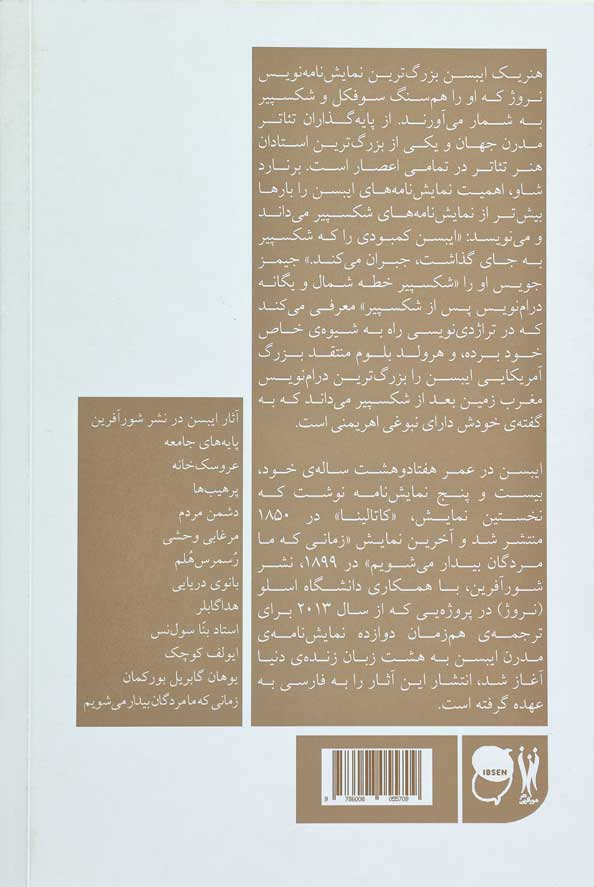 هنریک ایبسن بزرگ‌ترین نمایش‌نامه‌نویس
نروژ که او را هم‌سنگ سوفکل و شکسپیر
به شمار می‌آورند. از پایه‌گذاران تئاتر
مدرن جهان و یکی از بزرگ‌ترین استادان
هنر تئاتر در تمامی اعصار است. برنارد
شاو، اهمیت نمایش‌نامه‌های ایبسن را بارها
بیش‌تر از نمایش‌نامه‌های شکسپیر می‌داند
و می‌نویسد: «ایبسن کمبودی را که شکسپیر
به جای گذاشت، جبران می‌کند.» جیمز
جویس او را «شکسپیر خطه شمال و یگانه
درام‌نویس پس از شکسپیر» معرفی می‌کند
که در تراژدی‌نویسی راه به شیوه‌ی خاص
خود برده، و هرولد بلوم منتقد بزرگ
آمریکایی ایبسن را بزرگ‌ترین درام‌نویس
مغرب زمین بعد از شکسپیر می‌داند که به
گفته‌ی خودش دارای نبوغی اهریمنی است.
ایبسن در عمر هفتادوهشت ساله‌ی خود،
بیست و پنج نمایش‌نامه نوشت که
نخستین نمایش، «کاتالینا» در ۱۸۵۰
منتشر شد و آخرین نمایش «زمانی که ما
مردگان بیدار می‌شویم» در ۱۸۹۹، نشر
شورآفرین، با همکاری دانشگاه اسلو
(نروژ) در پروژه‌یی که از سال ۲۰۱۳ برای
ترجمه‌ی هم‌زمان دوازده نمایش‌نامه‌ی
مدرن ایبسن به هشت زبان زنده‌ی دنیا
آغاز شد، انتشار این آثار را به فارسی به
عهده گرفته است.
آثار ایبسن در نشر شورآفرین
پایه‌های جامعه
عروسک‌خانه
پرهیب‌ها
دشمن مردم
مرغابی وحشی
رُسمرس هُلم
بانوی دریایی
هداگابلر
استاد بنّا سول‌نس
ایولف کوچک
یوهان گابریل بورکمان
زمانی که ما مردگان بیدار می‌شویم
9 786008 055709
IBSEN
نشر
شورآفرین